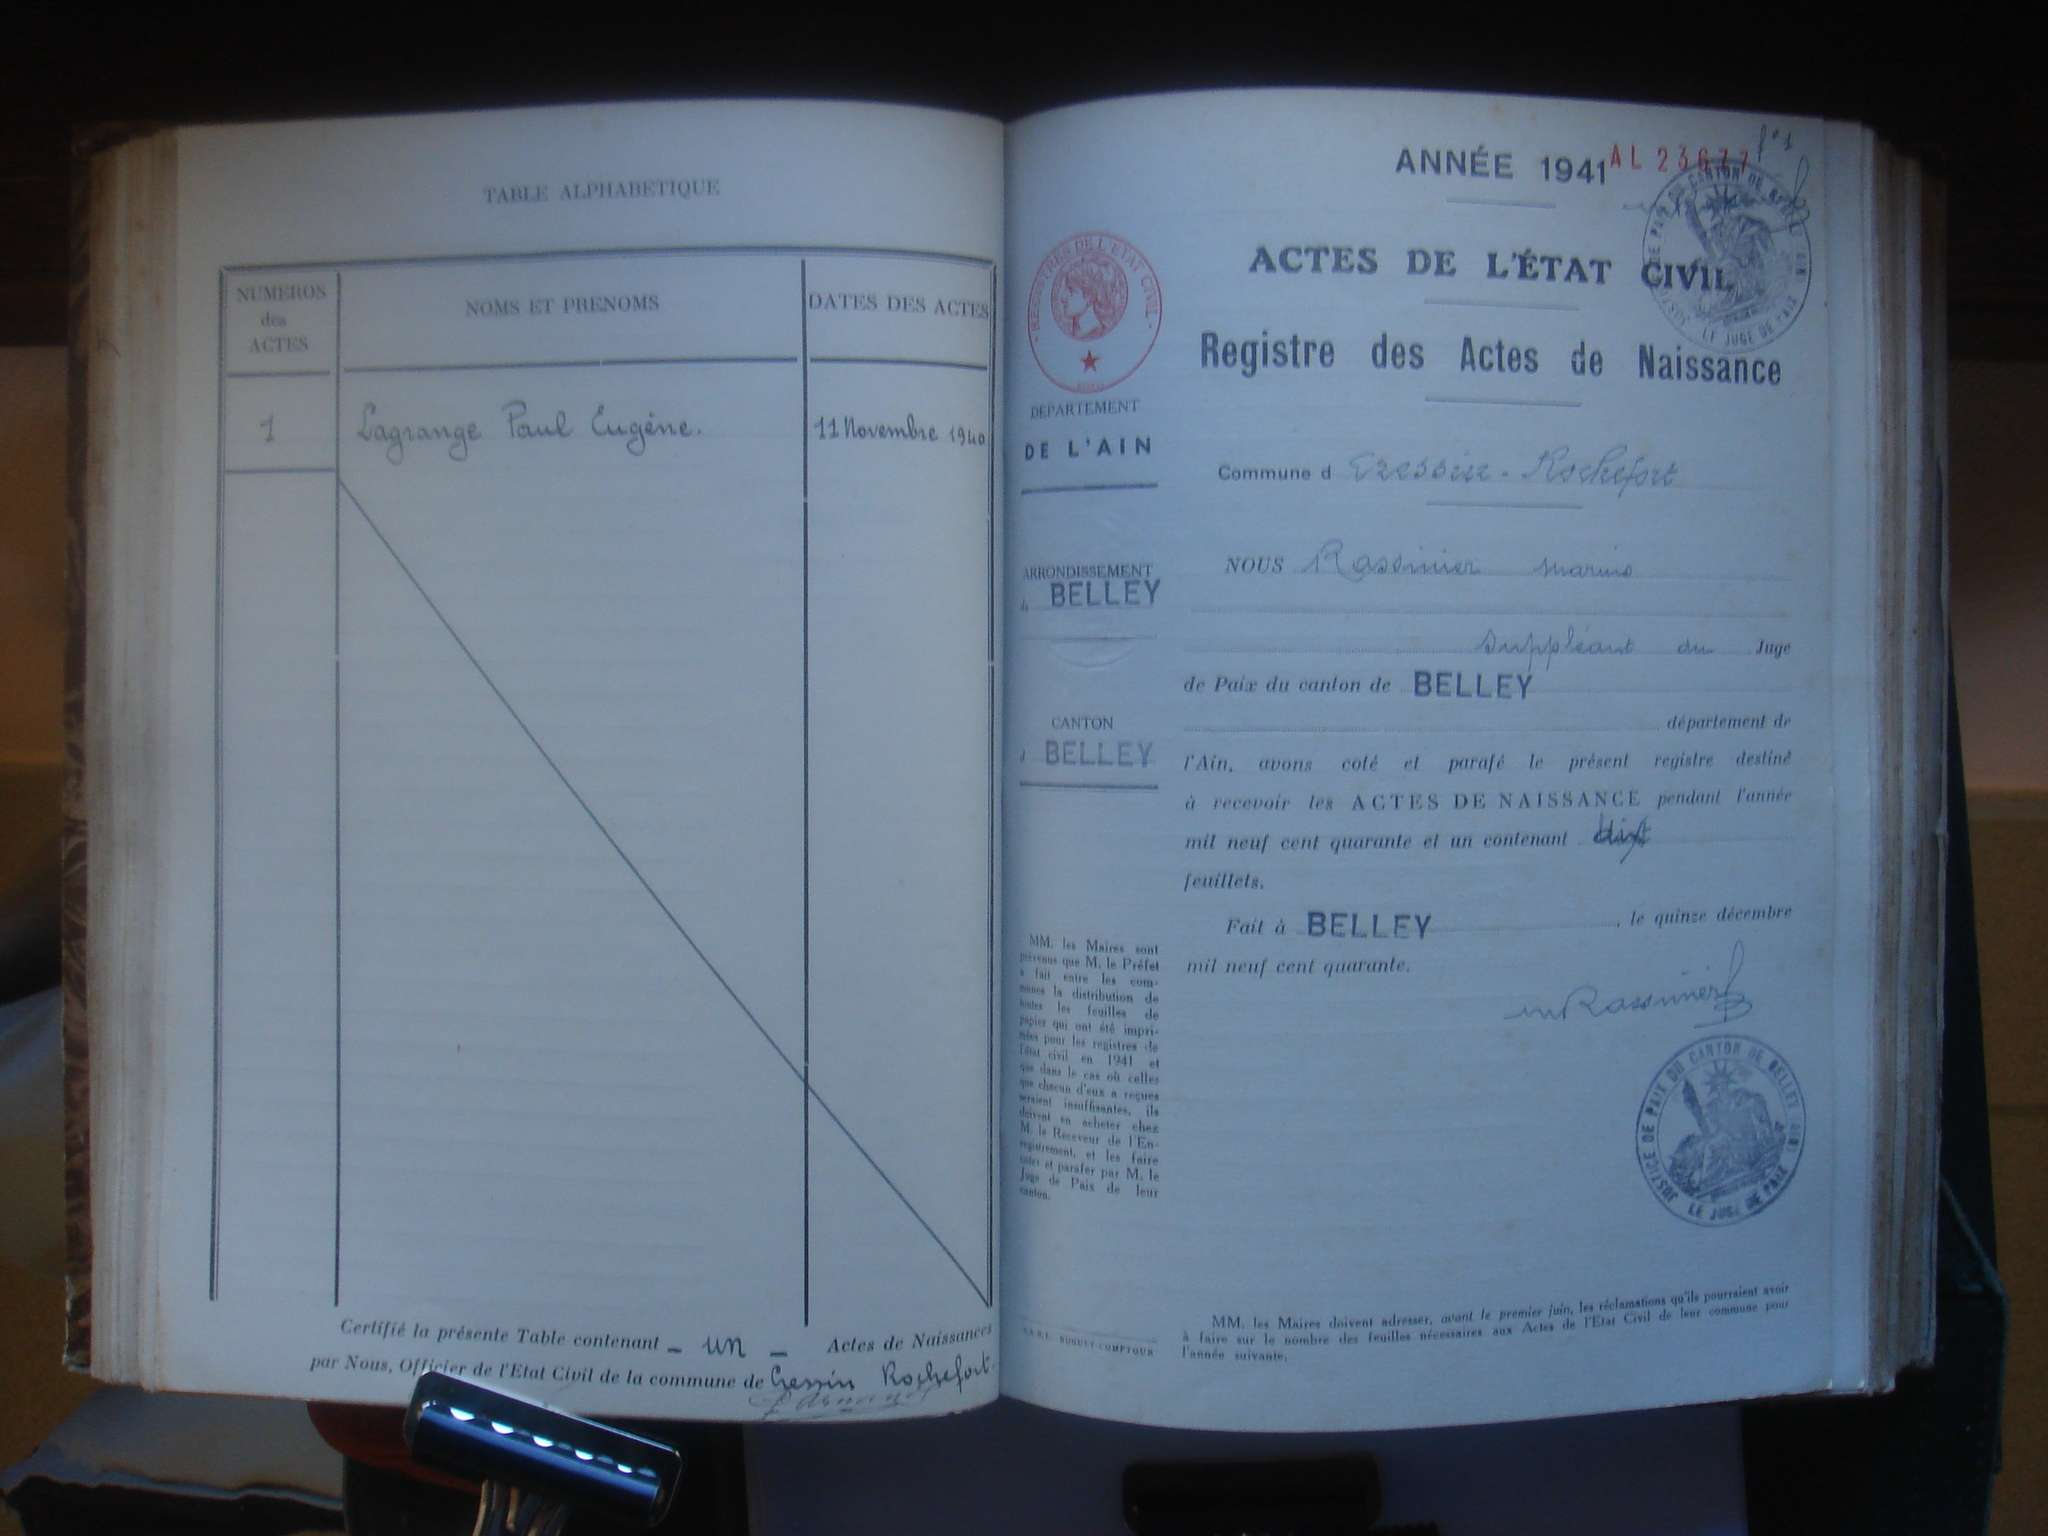 TABLE ALPHABETIQUE
NUMEROS
des
ACTES
NOMS ET PRENOMS
DATES DES ACTES
1
Lagrange Paul Eugène.
11 Novembre 1940
Certifié la présente Table contenant - un - Actes de Naissances
par Nous, Officier de l'Etat Civil de la commune de Cressin Rochefort-
ANNÉE 1941
AL 23677
f° 1
ACTES DE L'ÉTAT CIVIL
Registre des Actes de Naissance
REGISTRES DE L'ETAT CIVIL
DÉPARTEMENT
DE L'AIN
Commune d Cressin-Rochefort
ARRONDISSEMENT
de BELLEY
NOUS Rassinier Marius
suppléant du Juge
de Paix du canton de BELLEY
CANTON
d BELLEY
département de
l'Ain, avons coté et parafé le présent registre destiné
à recevoir les ACTES DE NAISSANCE pendant l'année
mil neuf cent quarante et un contenant dix
feuillets.
Fait à BELLEY, le quinze décembre
mil neuf cent quarante.
mRassinier
JUSTICE DE PAIX DU CANTON DE BELLEY (AIN)
LE JUGE DE PAIX
MM. les Maires sont
prévenus que M. le Préfet
a fait entre les com-
munes la distribution de
toutes les feuilles de
papier qui ont été impri-
mées pour les registres de
l'état civil en 1941 et
que dans le cas où celles
que chacun d'eux a reçues
seraient insuffisantes, ils
doivent en acheter chez
M. le Receveur de l'En-
registrement, et les faire
coter et parafer par M. le
Juge de Paix de leur
canton.
MM. les Maires doivent adresser, avant le premier juin, les réclamations qu'ils pourraient avoir
à faire sur le nombre des feuilles nécessaires aux Actes de l'Etat Civil de leur commune pour
l'année suivante.